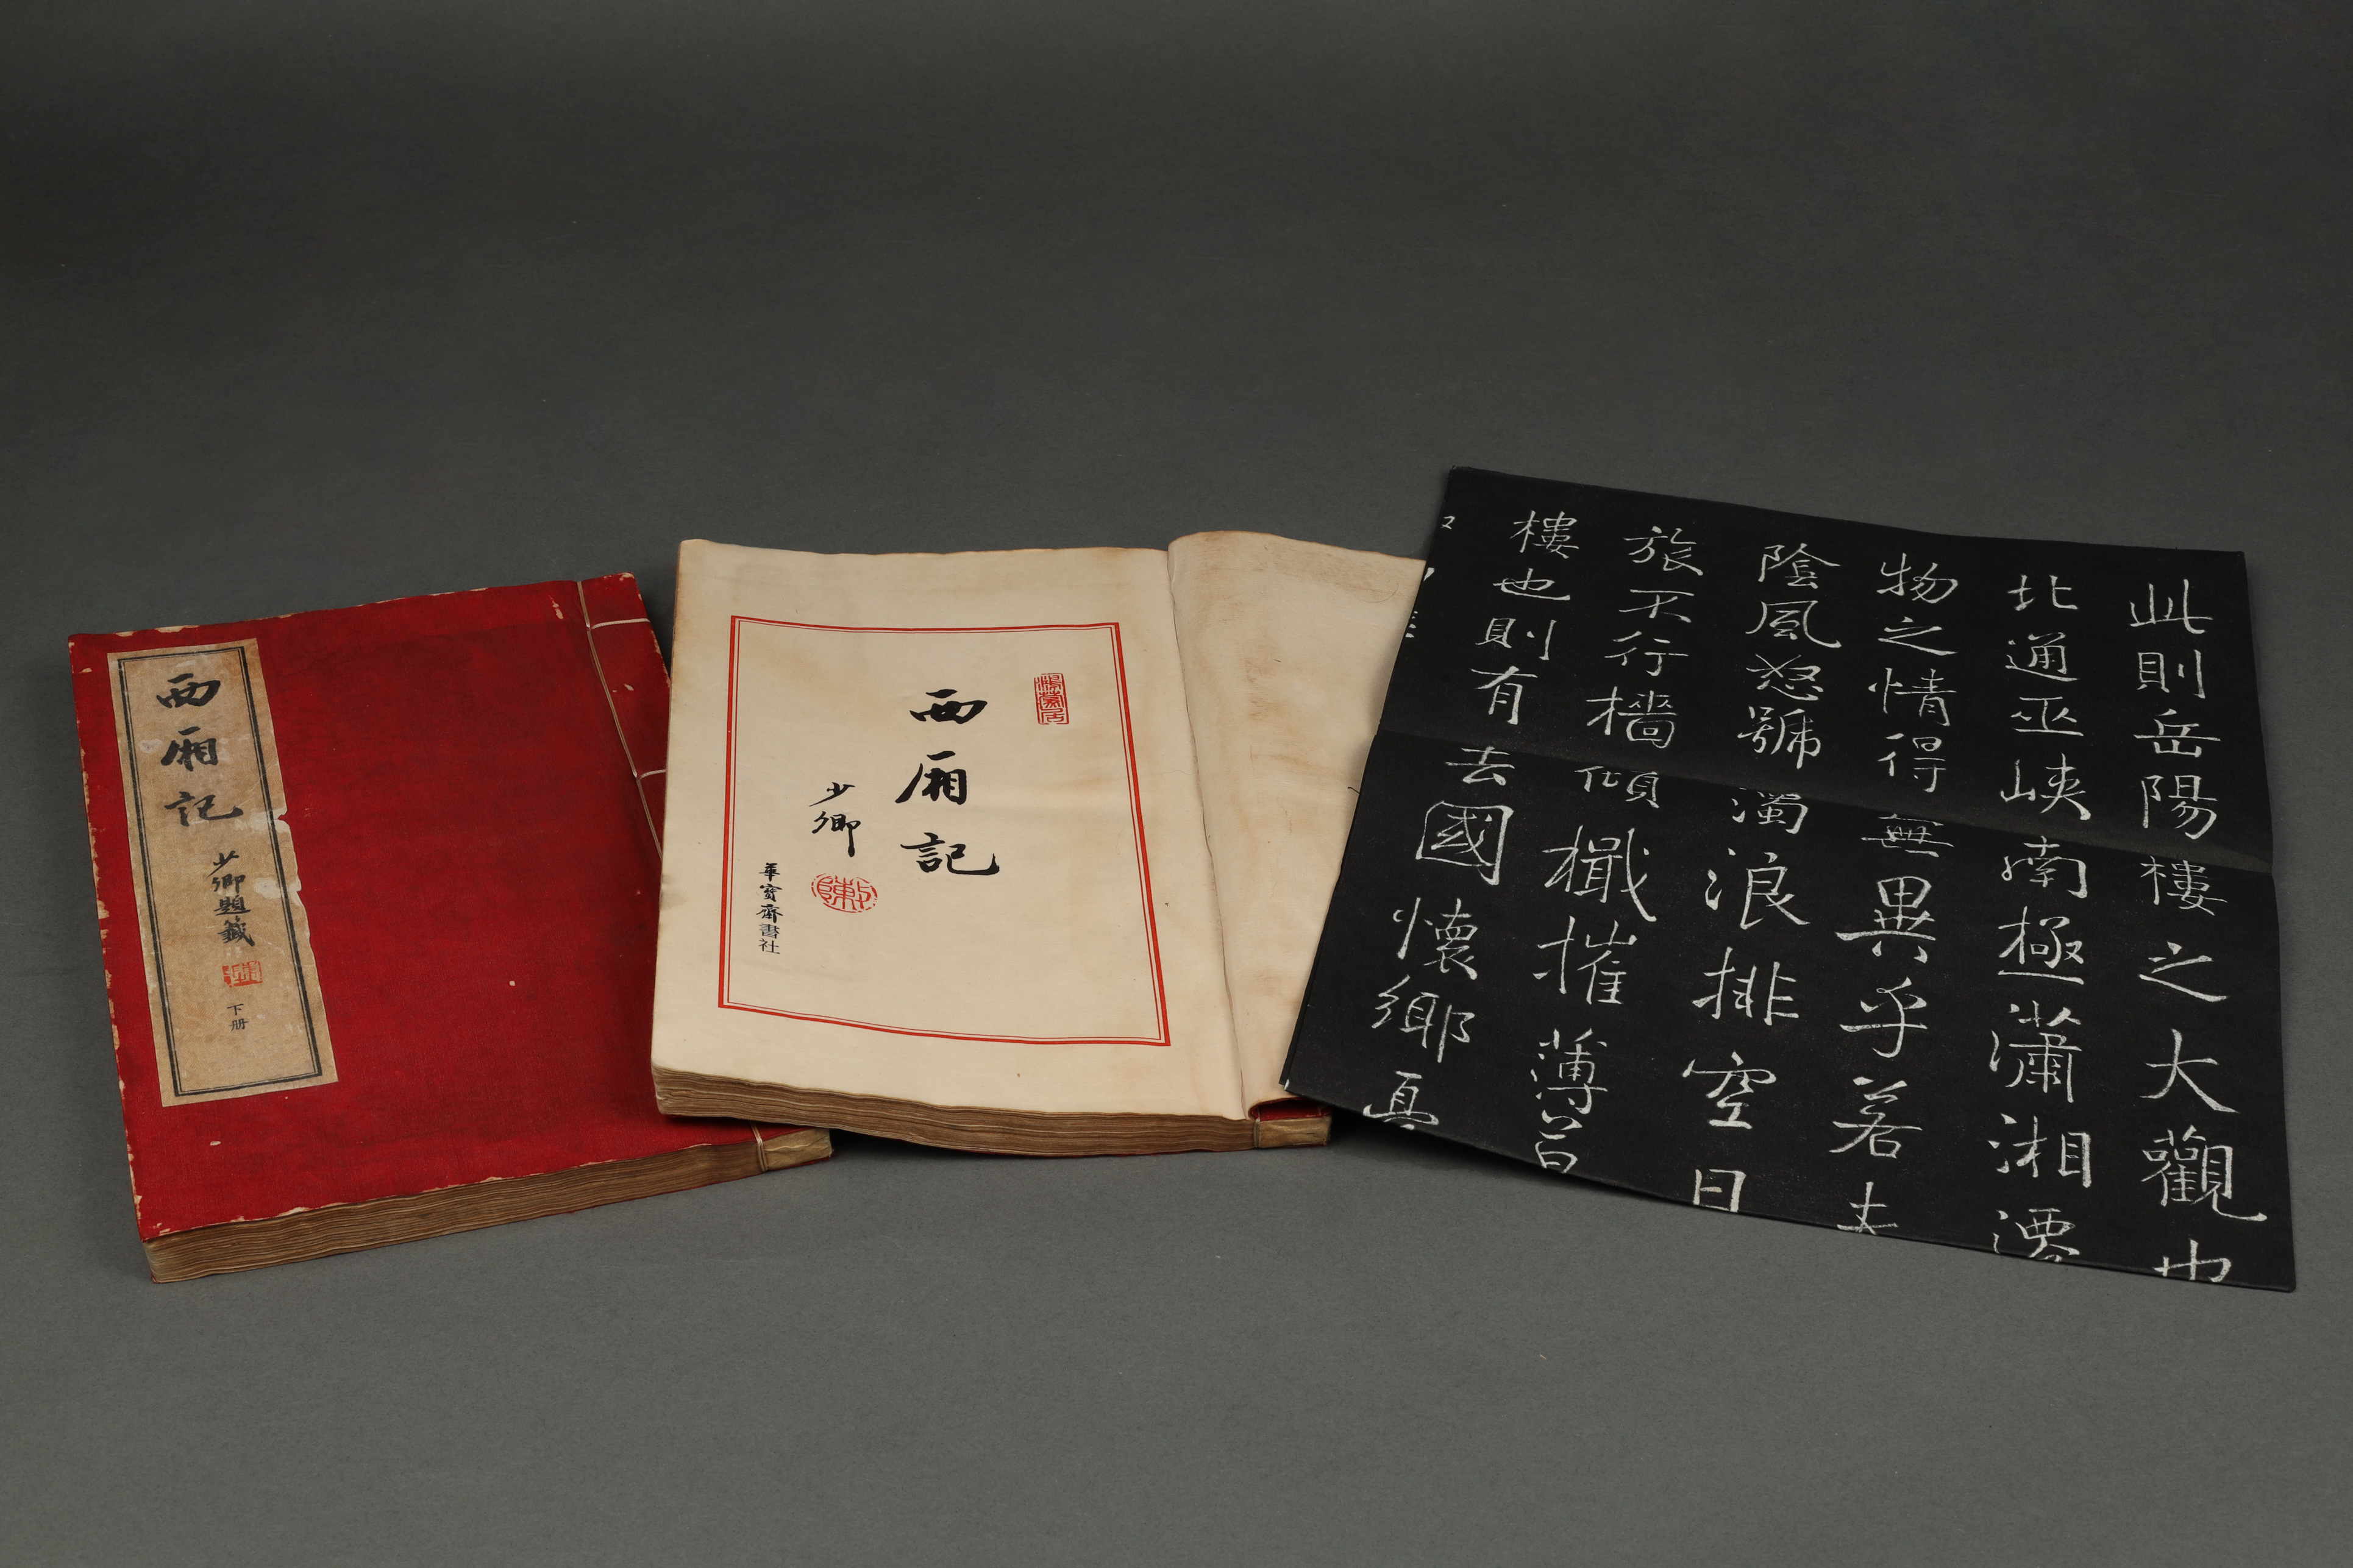 西厢記
少卿題籤
下册
西厢記
少卿
華寳齋書社
此則岳陽樓之大觀也
北通巫峽南極瀟湘遷
物之情得無異乎若夫
陰風怒號濁浪排空日
旅不行檣傾檝摧薄暮
樓也則有去國懷鄉